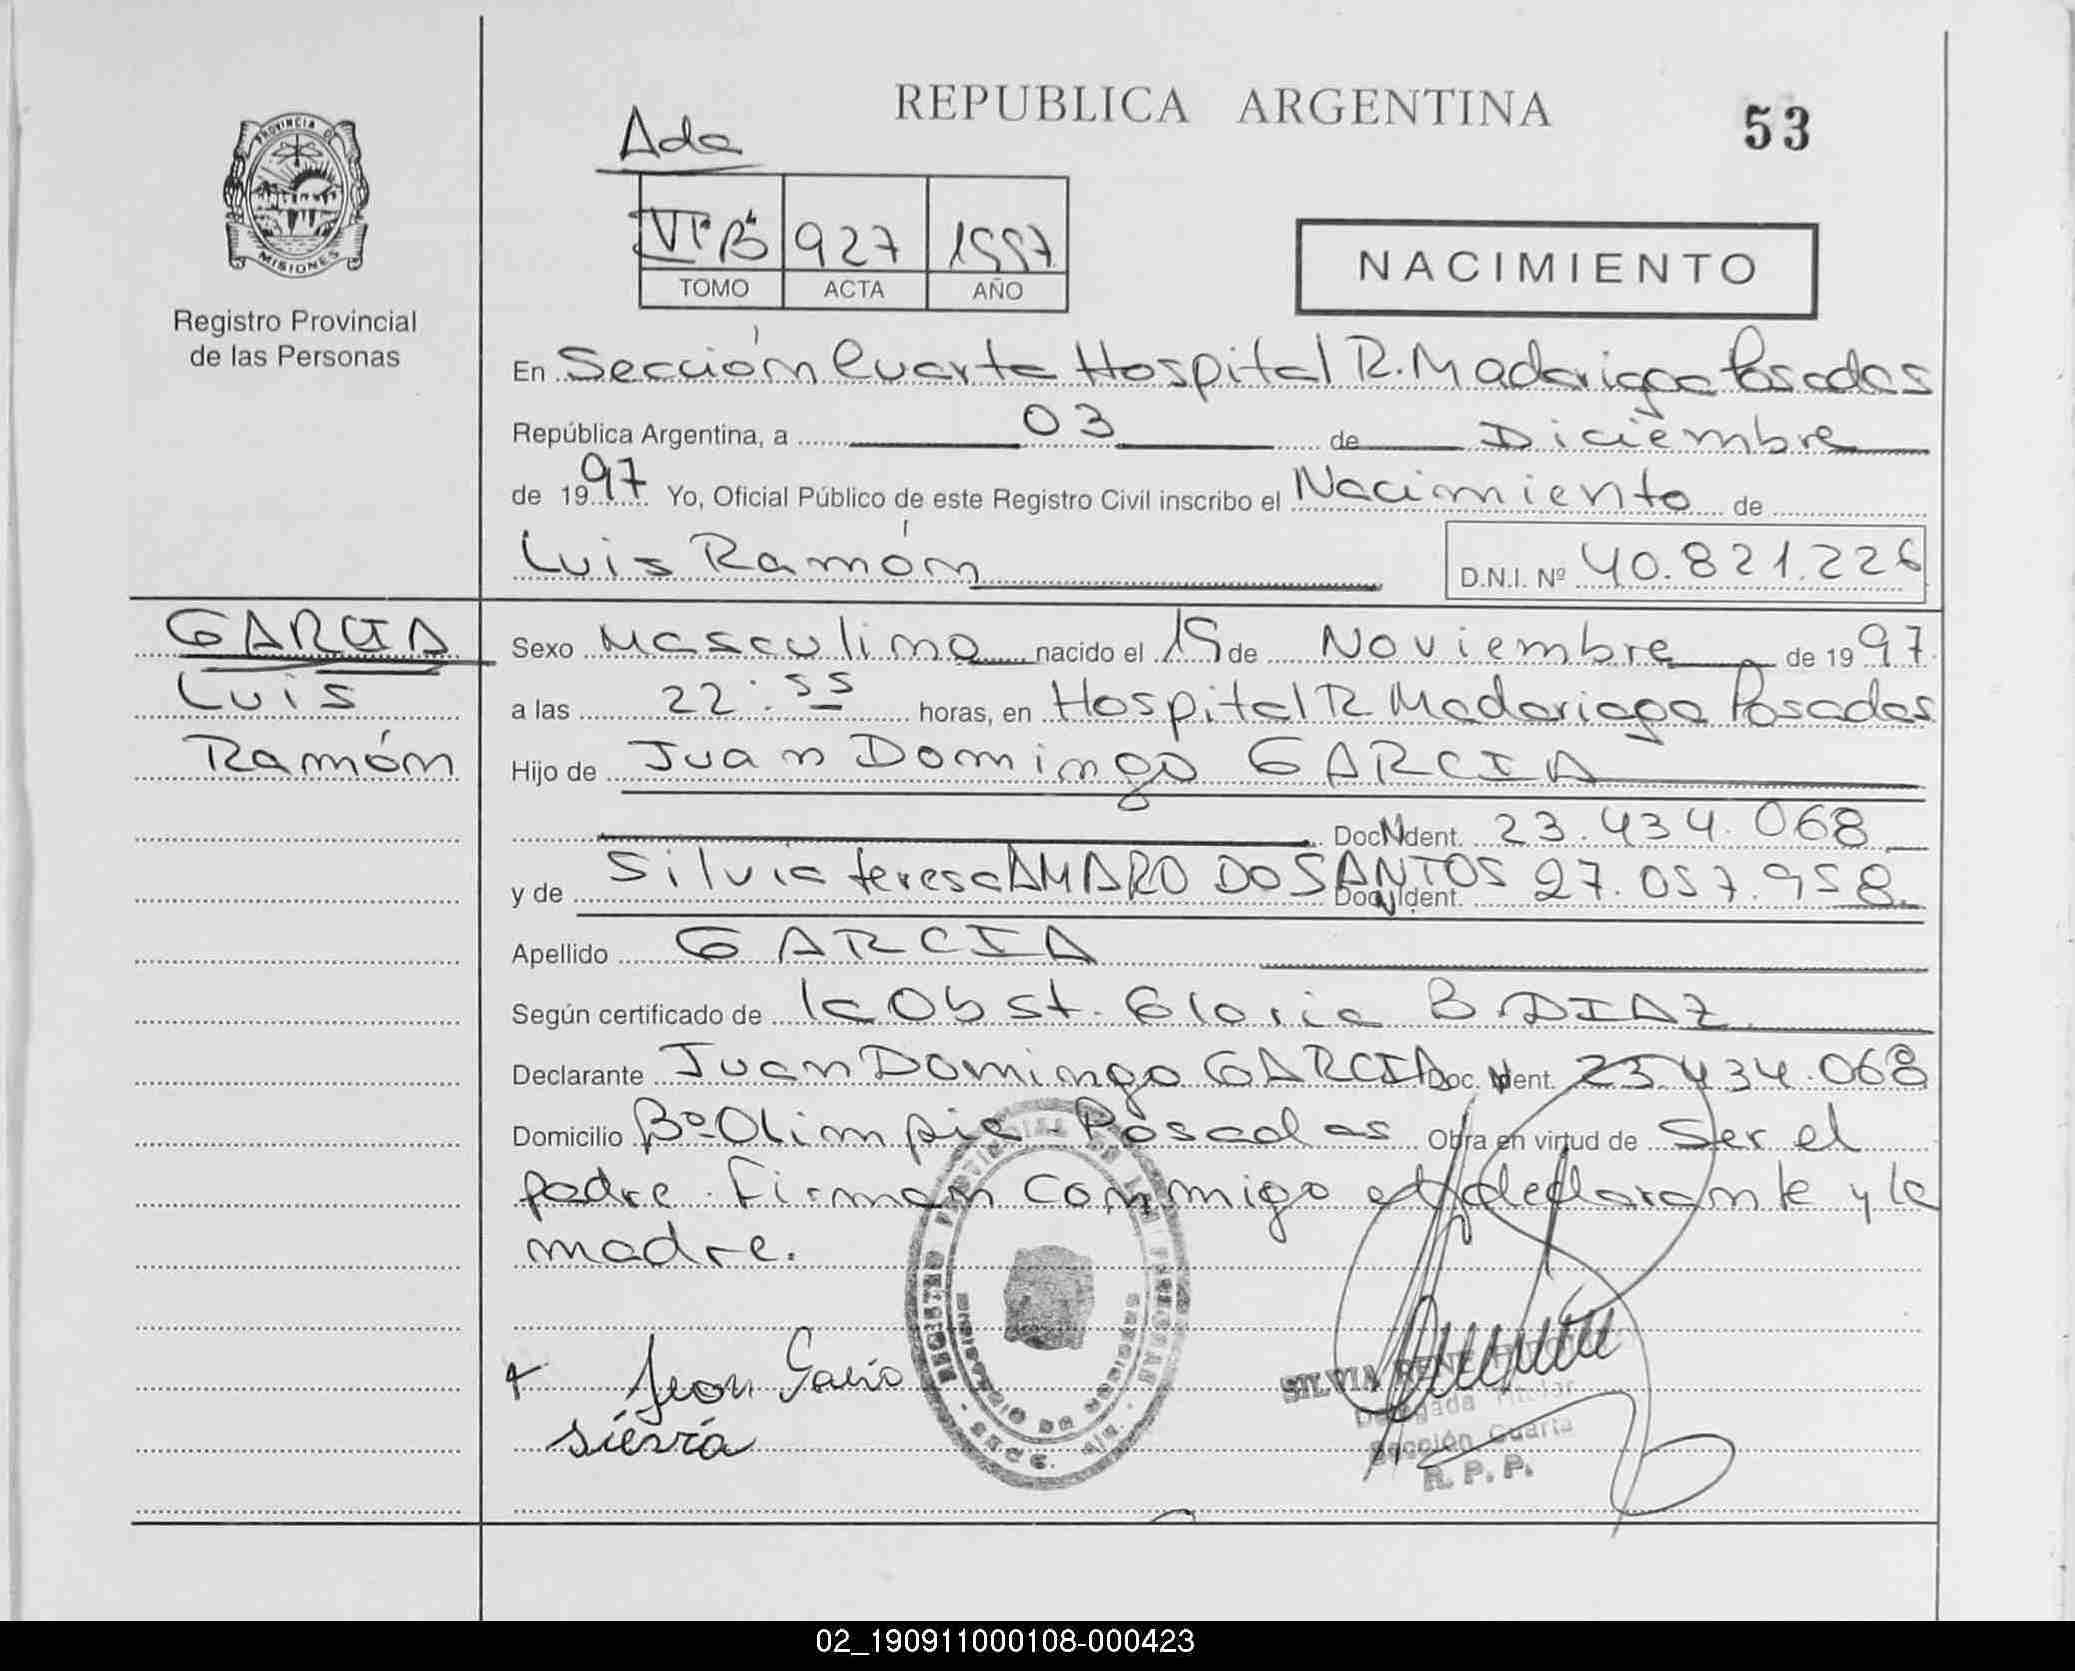 REPUBLICA ARGENTINA
53
PROVINCIA DE
MISIONES
Registro Provincial
de las Personas
Ada
VIº Bª 927 1997
TOMO ACTA AÑO
NACIMIENTO
En Sección Cuarta Hospital R. Madariaga Posadas
República Argentina, a 03 de Diciembre
de 1997 Yo, Oficial Público de este Registro Civil inscribo el Nacimiento de
Luis Ramón D.N.I. Nº 40.821.226
GARCIA
Luis
Ramón
Sexo Masculino nacido el 19 de Noviembre de 1997
a las 22:55 horas, en Hospital R Madariaga Posadas
Hijo de Juan Domingo GARCIA
Doc. Ident. 23.434.068
y de Silvia teresa AMARO DO SANTOS Doc. Ident. 27.057.958
Apellido GARCIA
Según certificado de la Obst. Gloria B DIAZ
Declarante Juan Domingo GARCIA Doc. Ident. 23.434.068
Domicilio Bº Olimpia Posadas Obra en virtud de Ser el
padre. Firman Conmigo el declarante y la
madre.
REGISTRO PROVINCIAL DE LAS PERSONAS
SILVIA RENE
Delegada Titular
Sección Cuarta
R. P. P.
02_190911000108-000423